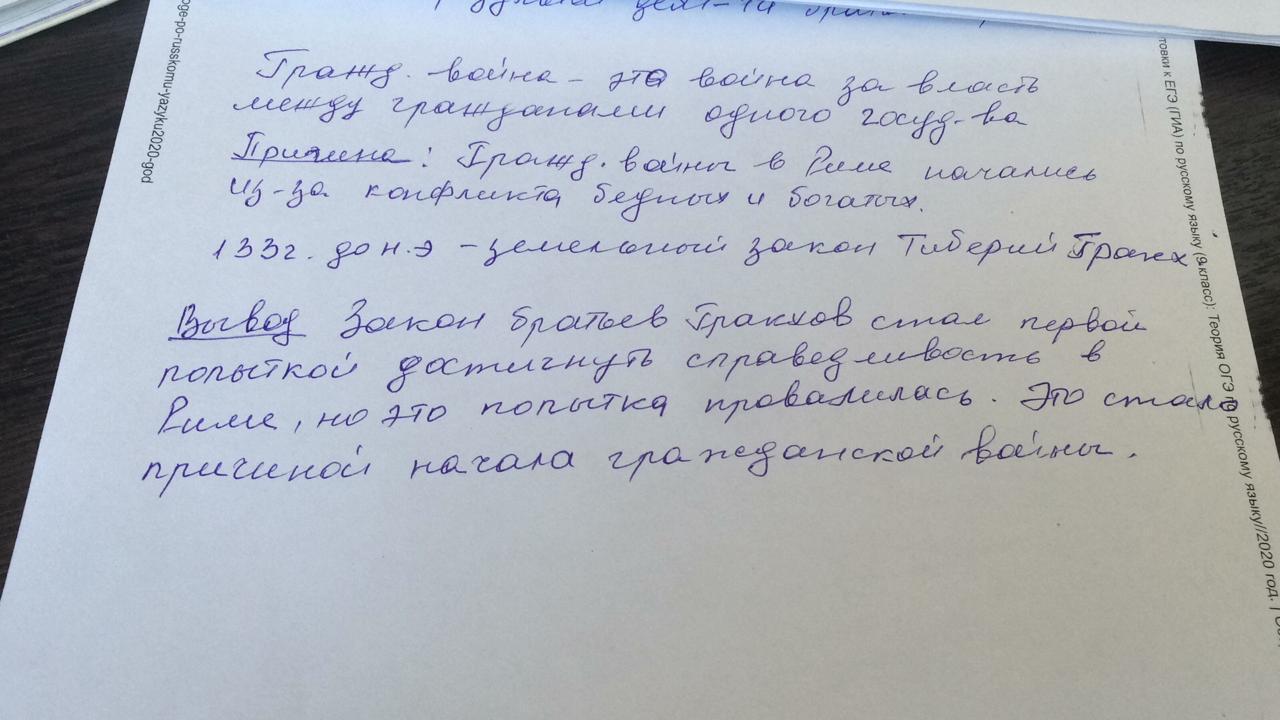 Гражд. война – это война за власть
между гражданами одного госуд-ва
Причина: Гражд. войны в Риме начались
из-за конфликта бедных и богатых.
133г. до н.э – земельный закон Тиберий Гракх
Вывод Закон братьев Гракхов стал первой
попыткой достигнуть справедливость в
Риме, но это попытка провалилась. Это стало
причиной начала гражданской войны.
oge-po-russkomu-yazyku2020-god
товки к ЕГЭ (ГИА) по русскому языку (9 класс): Теория ОГЭ по русскому языку//2020 год.